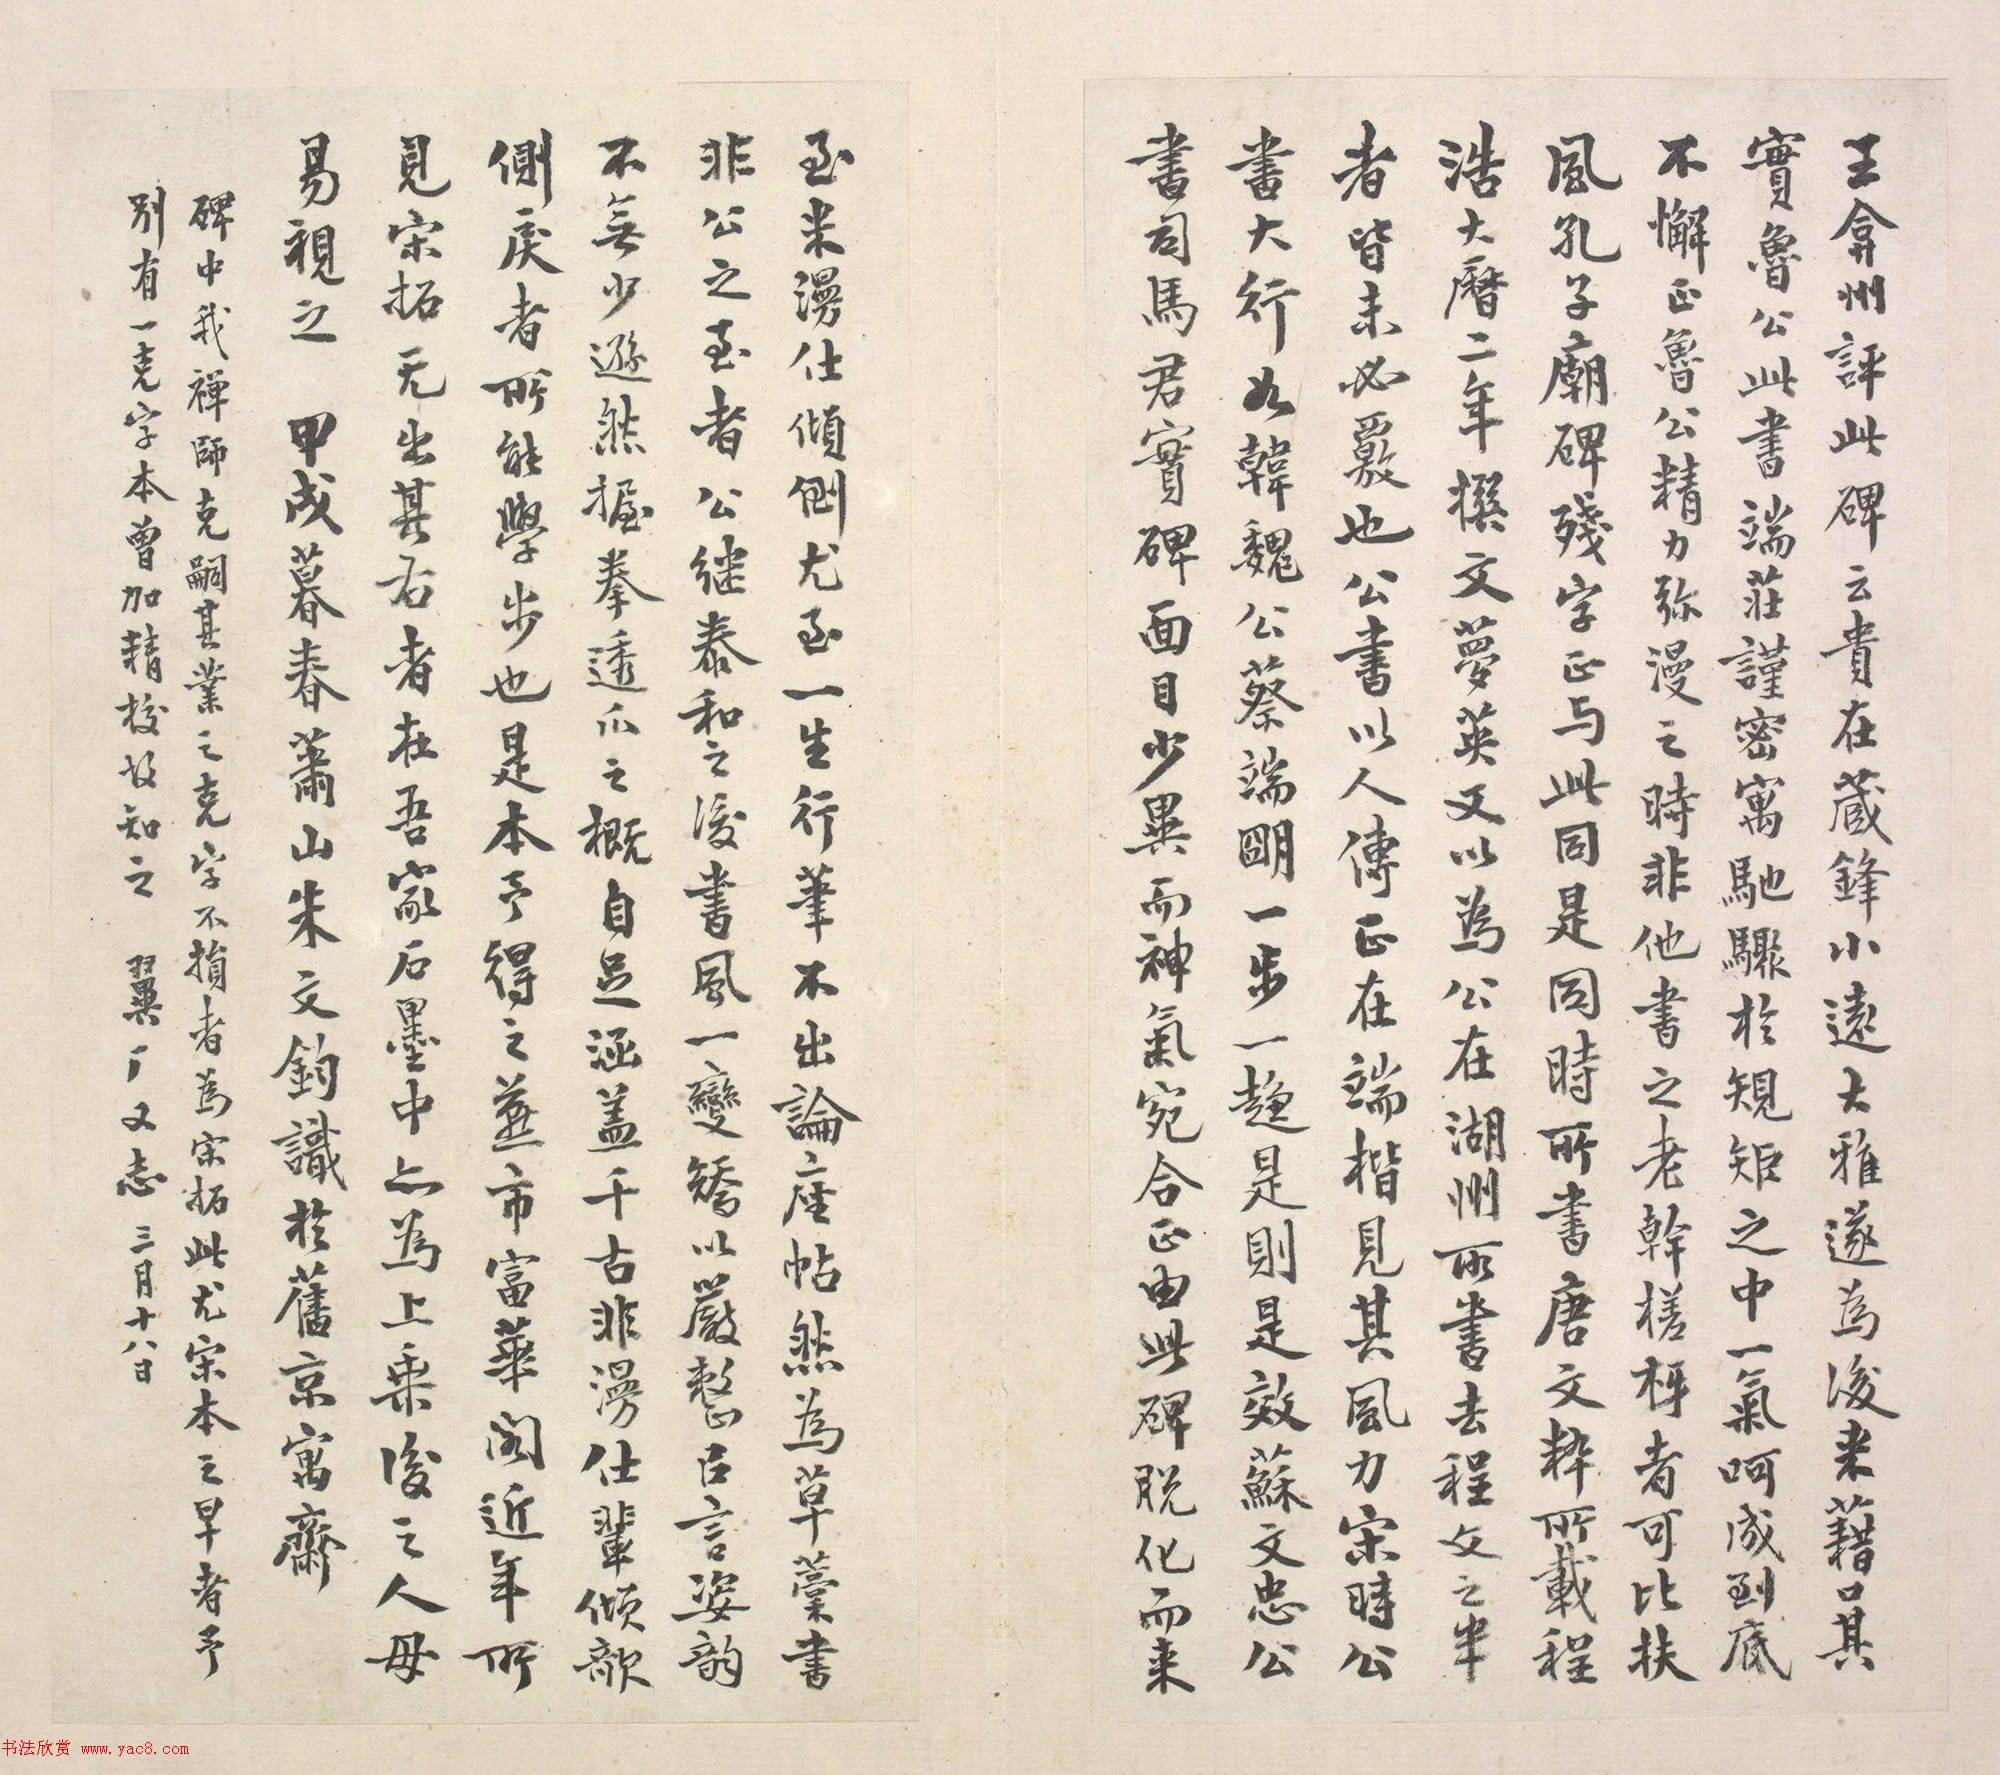 王弇州評此碑云貴在藏鋒小遠大雅遂爲後来藉口其
實魯公此書端莊謹密寓馳驟於規矩之中一氣呵成到底
不懈正魯公精力弥漫之時非他書之老幹槎枒者可比扶
風孔子廟碑殘字正与此同是同時所書唐文粹所載程
浩大曆二年撰文夢英又以爲公在湖州所書去程文之年
者皆未必覈也公書以人傳正在端楷見其風力宋時公
書大行如韓魏公蔡端明一步一趨是則是效蘇文忠公
書司馬君實碑面目少異而神氣宛合正由此碑脱化而来
至米漫仕傾倒尤至一生行筆不出論座帖然爲草藁書
非公之至者公继泰和之後書風一變矯以嚴整正言姿韵
不無少遜然握拳透爪之概自足涵盖千古非漫仕輩傾欹
側戾者所能學步也是本予得之燕市富華阁近年所
見宋拓无出其右者在吾家石墨中亦爲上乗後之人毋
易視之 甲戌暮春蕭山朱文鈞識於舊京寓齋
碑中我禪師克嗣其業之克字不損者爲宋拓此尤宋本之早者予
别有一克字本曾加精校故知之 翼厂又志 三月十八日
书法欣赏 www.yac8.com